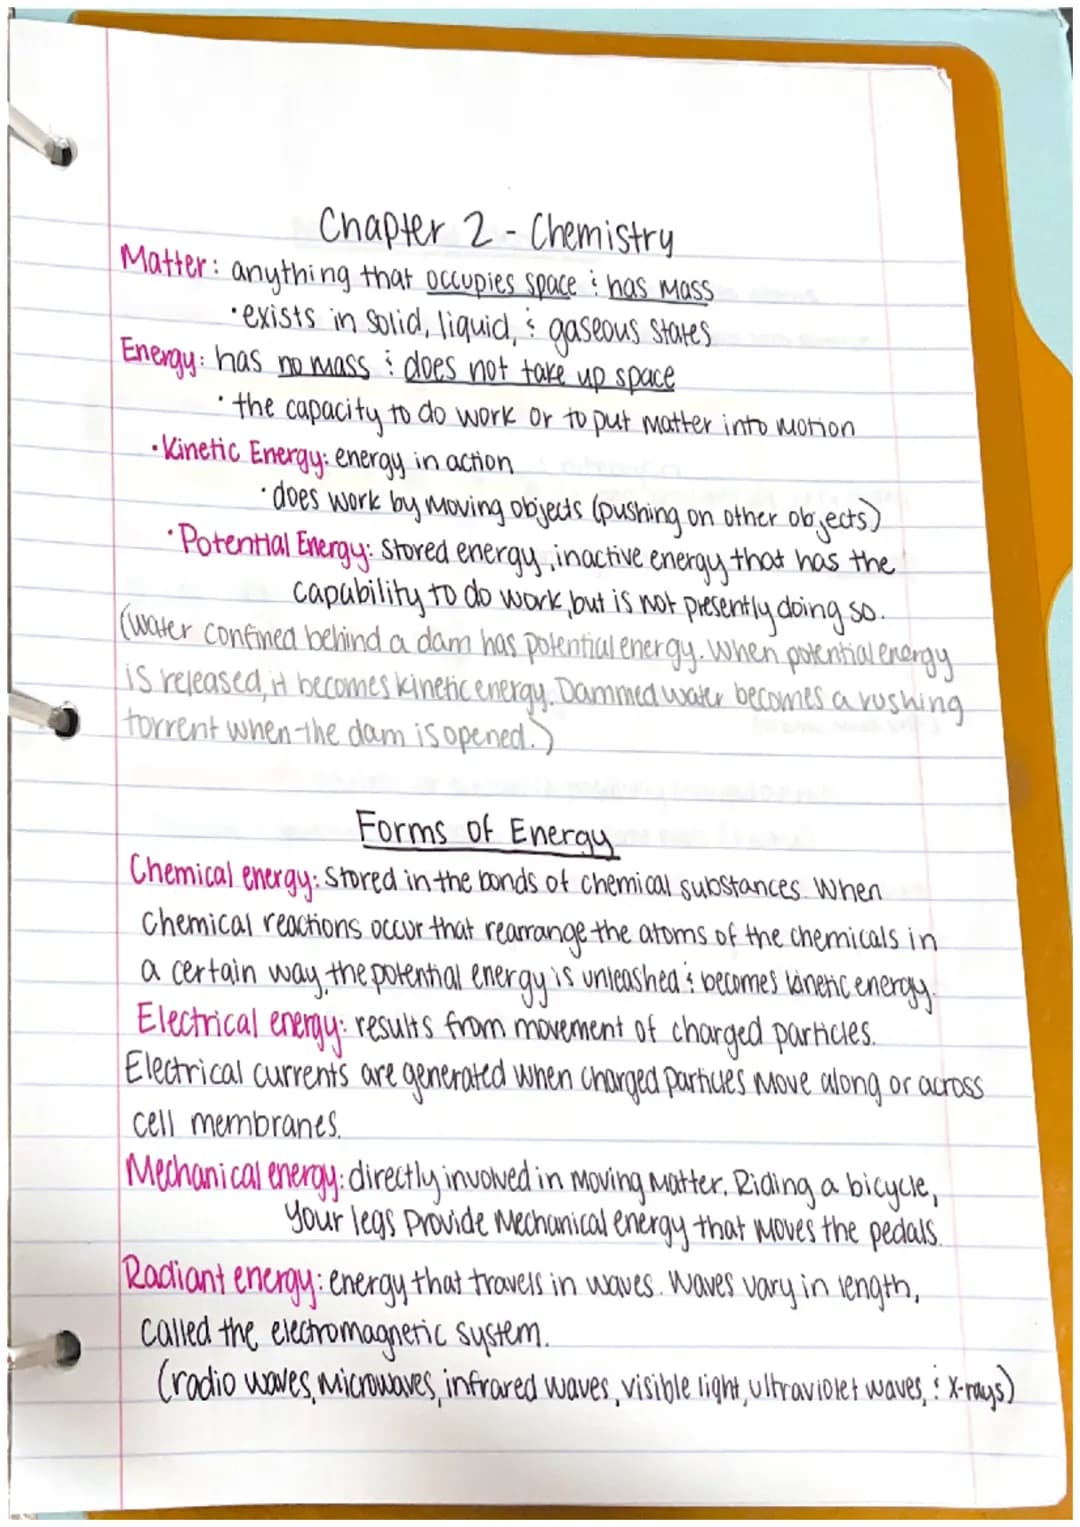 Chapter 2 - Chemistry
Matter: anything that occupies space & has mass
• exists in solid, liquid, & gaseous states
Energy: has no mass & does not take up space
• the capacity to do work or to put matter into motion
• Kinetic Energy: energy in action
• does work by moving objects (pushing on other objects)
• Potential Energy: stored energy, inactive energy that has the
capability to do work, but is not presently doing so.
(Water confined behind a dam has potential energy. When potential energy
is released, it becomes kinetic energy. Dammed water becomes a rushing
torrent when the dam is opened.)
Forms of Energy
Chemical energy: Stored in the bonds of chemical substances. When
chemical reactions occur that rearrange the atoms of the chemicals in
a certain way, the potential energy is unleashed & becomes kinetic energy.
Electrical energy: results from movement of charged particles.
Electrical currents are generated when charged particles move along or across
cell membranes.
Mechanical energy: directly involved in moving matter. Riding a bicycle,
your legs provide mechanical energy that moves the pedals.
Radiant energy: energy that travels in waves. Waves vary in length,
called the electromagnetic system.
(radio waves, microwaves, infrared waves, visible light, ultraviolet waves, & x-rays)